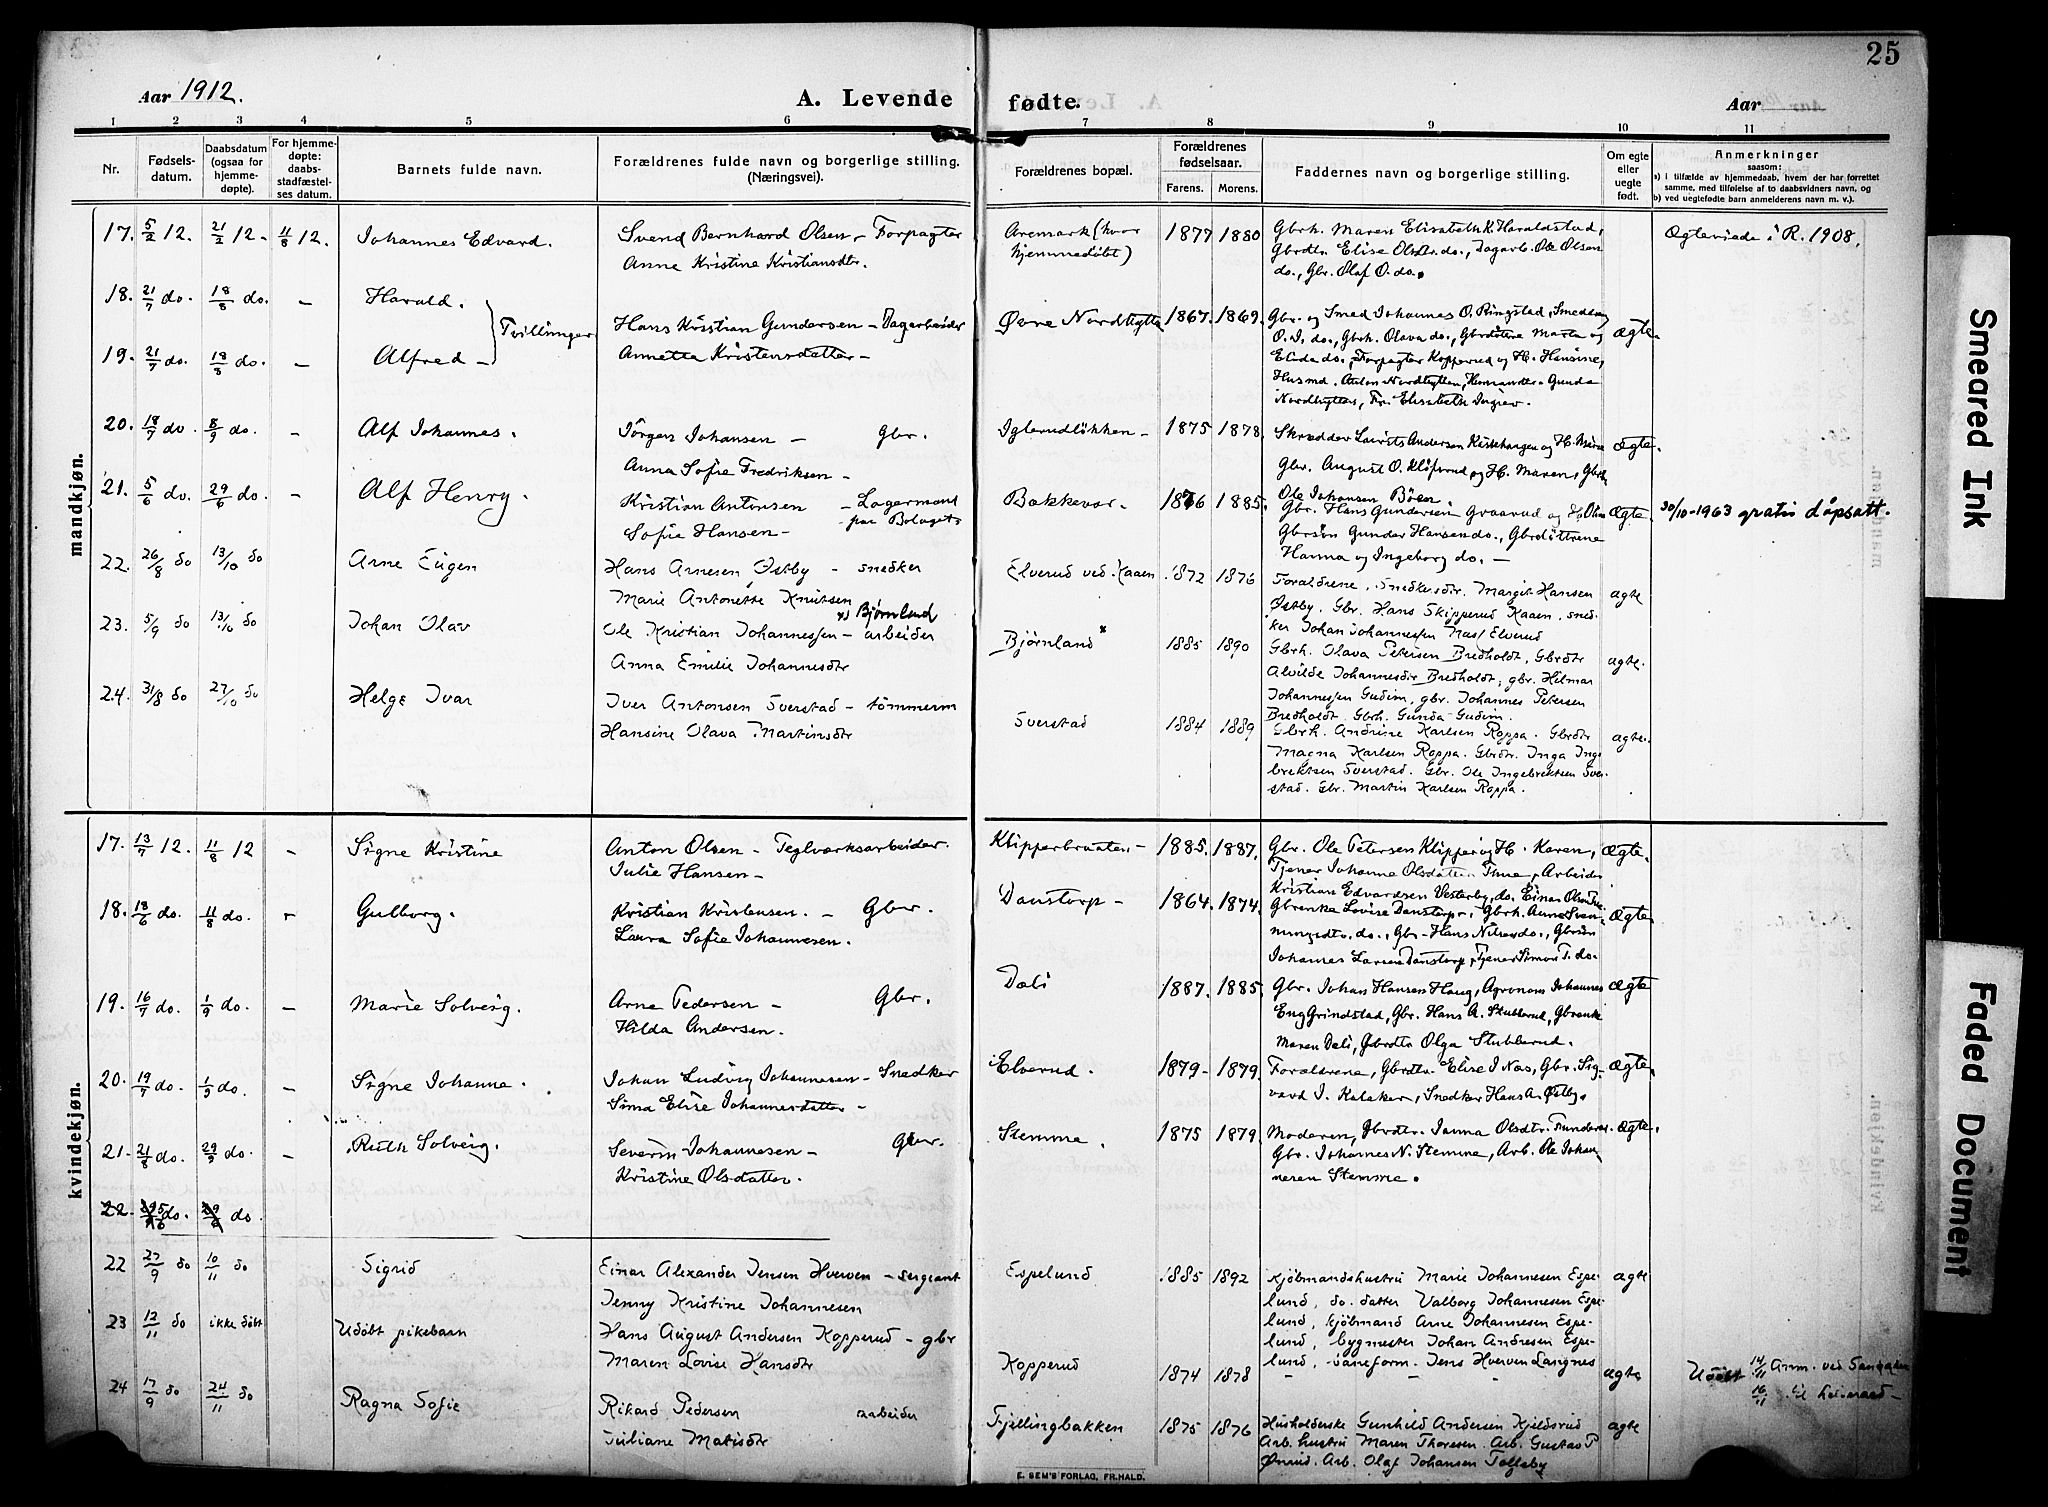 25
Aar 1912.
A. Levende fødte.
Aar
1 2 3 4 5 6 7 8 9 10 11
Nr.
Fødsels-
datum.
Daabsdatum
(ogsaa for
hjemme-
døpte).
For hjemme-
døpte:
daabs-
stadfæstel-
ses datum.
Barnets fulde navn.
Forældrenes fulde navn og borgerlige stilling.
(Næringsvei).
Forældrenes bopæl.
Forældrenes
fødselsaar.
Farens. Morens.
Faddernes navn og borgerlige stilling.
Om egte
eller
uegte
født.
Anmerkninger
saasom:
a) i tilfælde av hjemmedaab, hvem der har forrettet
samme, med tilføielse af to daabsvidners navn, og
b) ved uegtefødte barn anmelderens navn m. v.).
mandkjøn.
17. 5/2 12. 21/2 12 - 11/8 12. Johannes Edvard.
Svend Bernhard Olsen - Forpagter
Anne Kristine Kristiansdtr.
Aremark (hvor
hjemmedøbt)
1877 1880
Gbrh. Maren Elisabeth K. Haraldstad,
Gbrdtr. Elise Olsdtr. do., Dagarb. Ole Olsen
do., Gbr. Olaf O. do.
Ægteviede i R. 1908.
18. 21/7 do. 18/8 do. - Harald.
19. 21/7 do. 18/8 do. - Alfred -
Tvillinger
Hans Kristian Gundersen - Dagarbeider
Annette Kristensdatter -
Øvre Nordhytta
1867. 1869.
Gbr. og Smed Johannes O. Ringstad, Smedsøn
O. J. do., Gbrh. Olava do., Gbrdötrene Marta og
Elida do., Forpagter Kopperud og H. Hansine,
Husmd. Anton Nordhytten, Husmandtr. Gunda
Nordhytten, Fr. Elisabeth Ingier.
Ægte.
20. 18/7 do 8/9 do. - Alf Johannes.
Jörgen Johansen - Gbr.
Anna Sofie Fredriksen -
Igletudløkken -
1875 1878.
Skredder Laurits Andersen Kirkehaugen og H. Marie
Gbr. August O. Klöfverud og H. Maren, Gbrh
Ole Johansen Böen.
Ægte.
21. 5/6 do. 29/6 do. - Alf Henry.
Kristian Antonsen - Lagermand
Sofie Hansen - paa Bolaget
Bakkevor.
1876 1885.
Gbr. Hans Gundersen Graarud og H. Oline
Gbrsön Gunder Hansen do., Gbrdöttrene
Hanna og Ingeborg do. -
Ægte.
30/10-1963 gratis dåpsatt.
22. 26/8 do 13/10 do Arne Eugen
Hans Arnesen Østby - snedker
Marie Antonette Knutsen
Elverud ved Kaaen
1872 1876
Forældrene. Snedkersdtr. Margit Hansen
Østby. Gbr. Hans Skipperud Kaaen. sned-
ker Johan Johannessen Nas/ Elverud
ægte
23. 5/9 do 13/10 do Johan Olav
x) Bjørnlund
Ole Kristian Johannessen - arbeider
Anna Emilie Johannesdtr
Bjørnland x
1885 1890
Gbrh. Olava Petersen Bredholdt, Gbrdtr
Alvilde Johannesdtr Bredholdt; gbr. Hilmar
Johannessen Gudim, gbr. Johannes Petersen
Bredholdt. Gbrh. Gunda Gudim.
ægte.
24. 31/8 do 27/10 do Helge Ivar
Iver Antonsen Sverstad - tömmerm
Hansine Olava Martinsdtr
Sverstad
1884 1889
Gbrh. Andrine Karlsen Roppa. Gbrdtr
Magna Karlsen Roppa. Gbrdtr. Inga Inge-
brektsen Sverstad. Gbr. Ole Ingebrektsen Sver-
stad. Gbr. Martin Karlsen Roppa.
ægte.
kvindekjøn.
17. 13/7 12. 11/8 12 - Signe Kristine
Anton Olsen - Teglværksarbeider.
Julie Hansen -
Klipperbraaten -
1885. 1887.
Gbr. Ole Petersen Klipper og H. Karen,
Tjener Johanne Olsdatter Tune, Arbeider
Kristian Edvardsen Vesterby, do. Einar Olsen
Ægte.
18. 18/6 do. 11/8 do. - Gulborg.
Kristian Kristensen. - Gbr.
Laura Sofie Johannesen.
Danstorp -
1864. 1874.
Gbrenke Lovise Danstorp, Gbrh. Anne Sven-
ningsdtr. do., Gbr. Hans Nilsen do., Gbrsön
Johannes Larsen Danstorp, Tjener Simon T. do.
Ægte
19. 16/7 do. 1/9 do. - Marie Solveig.
Arne Pedersen - Gbr.
Hilda Andersen.
Dæli
1887. 1885.
Gbr. Johan Hansen Haug, Agronom Johannes
Eng Grindstad, Gbr. Hans A. Stubberud, Gbrenke
Maren Dæli, Gbrdtr. Olga Stubberud.
Ægte
20. 19/7 do. 1/9 do. - Signe Johanne.
Johan Ludvig Johannesen - Snedker
Sina Elise Johannesdatter -
Elverud.
1879 - 1879.
Forældrene, Gbrdtr. Elise J Nas, Gbr. Sig-
vard J. Kalaker, Snedker Hans A. Østby.
Ægte.
21. 21/8 do. 29/9 do. - Ruth Solveig.
Severin Johannesen - Gbr.
Kristine Olsdatter.
Stemme.
1875 1879.
Moderen, Gbrdtr. Janna Olsdtr.
Gbr. Johannes N. Stemme, Arb. Ole Johan-
nesen Stemme.
Ægte.
22. do. do.
22 27/9 do 10/11 do Sigrid
Einar Alexander Jensen Hverven - sergeant
Jenny Kristine Johannesen
Espelund
1885 1892
Kjöbmandshustru Marie Johannesen Espe-
lund, do. datter Valborg Johannesen Espe-
lund, kjöbmand Arne Johannesen Espe-
lund, bygmester Johan Andresen Espe-
lund, vaneform. Jens Hverven Langnes
ægte
23 13/11 do ikke döbt Udöbt pikebarn
Hans August Andersen Kopperud - gbr
Maren Lovise Hansdtr
Kopperud
1874 1878
- " "
ægte
Udöbt 14/11 Anm. ved
16/11 til
24 17/9 do 24/11 do Ragna Sofie
Rikard Pedersen arbeider
Juliane Matisdtr
Fjellingbakken
1875 1876
Husholderske Gunhild Andersen Kjeldsrud
Arb. hustru Maren Thoresen. Arb. Gustav P
Ørud. Arb. Olaf Johansen Tolfsby
ægte
E. SEM'S FORLAG, FR.HALD.
Smeared Ink
Faded Document